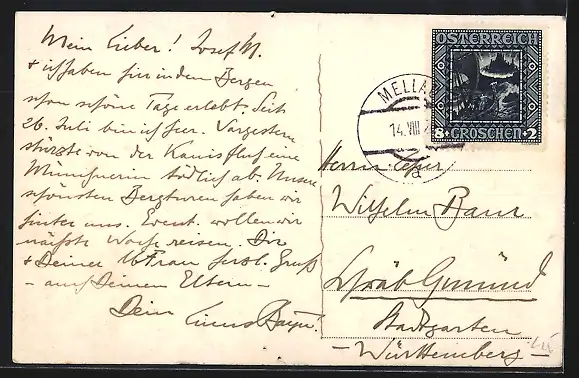 Mein Lieber! Josef M.
+ ich haben hier in den Bergen
schon schöne Tage erlebt. Seit
26. Juli bin ich hier. Vorgestern
stürzte von der Kanisfluh eine
Münchnerin tödlich ab. Unsere
schönsten Bergturen haben wir
hinter uns. Event. wollen wir
nächste Woche reisen. Dir
+ Deiner lb Frau herzl. Gruß
- auch Deinen Eltern -
Dein
ÖSTERREICH
8 GROSCHEN 2
MELLAU
14. VIII
Herrn
Wilhelm Baur
Schwäb Gmünd
Stadtgarten
- Württemberg -